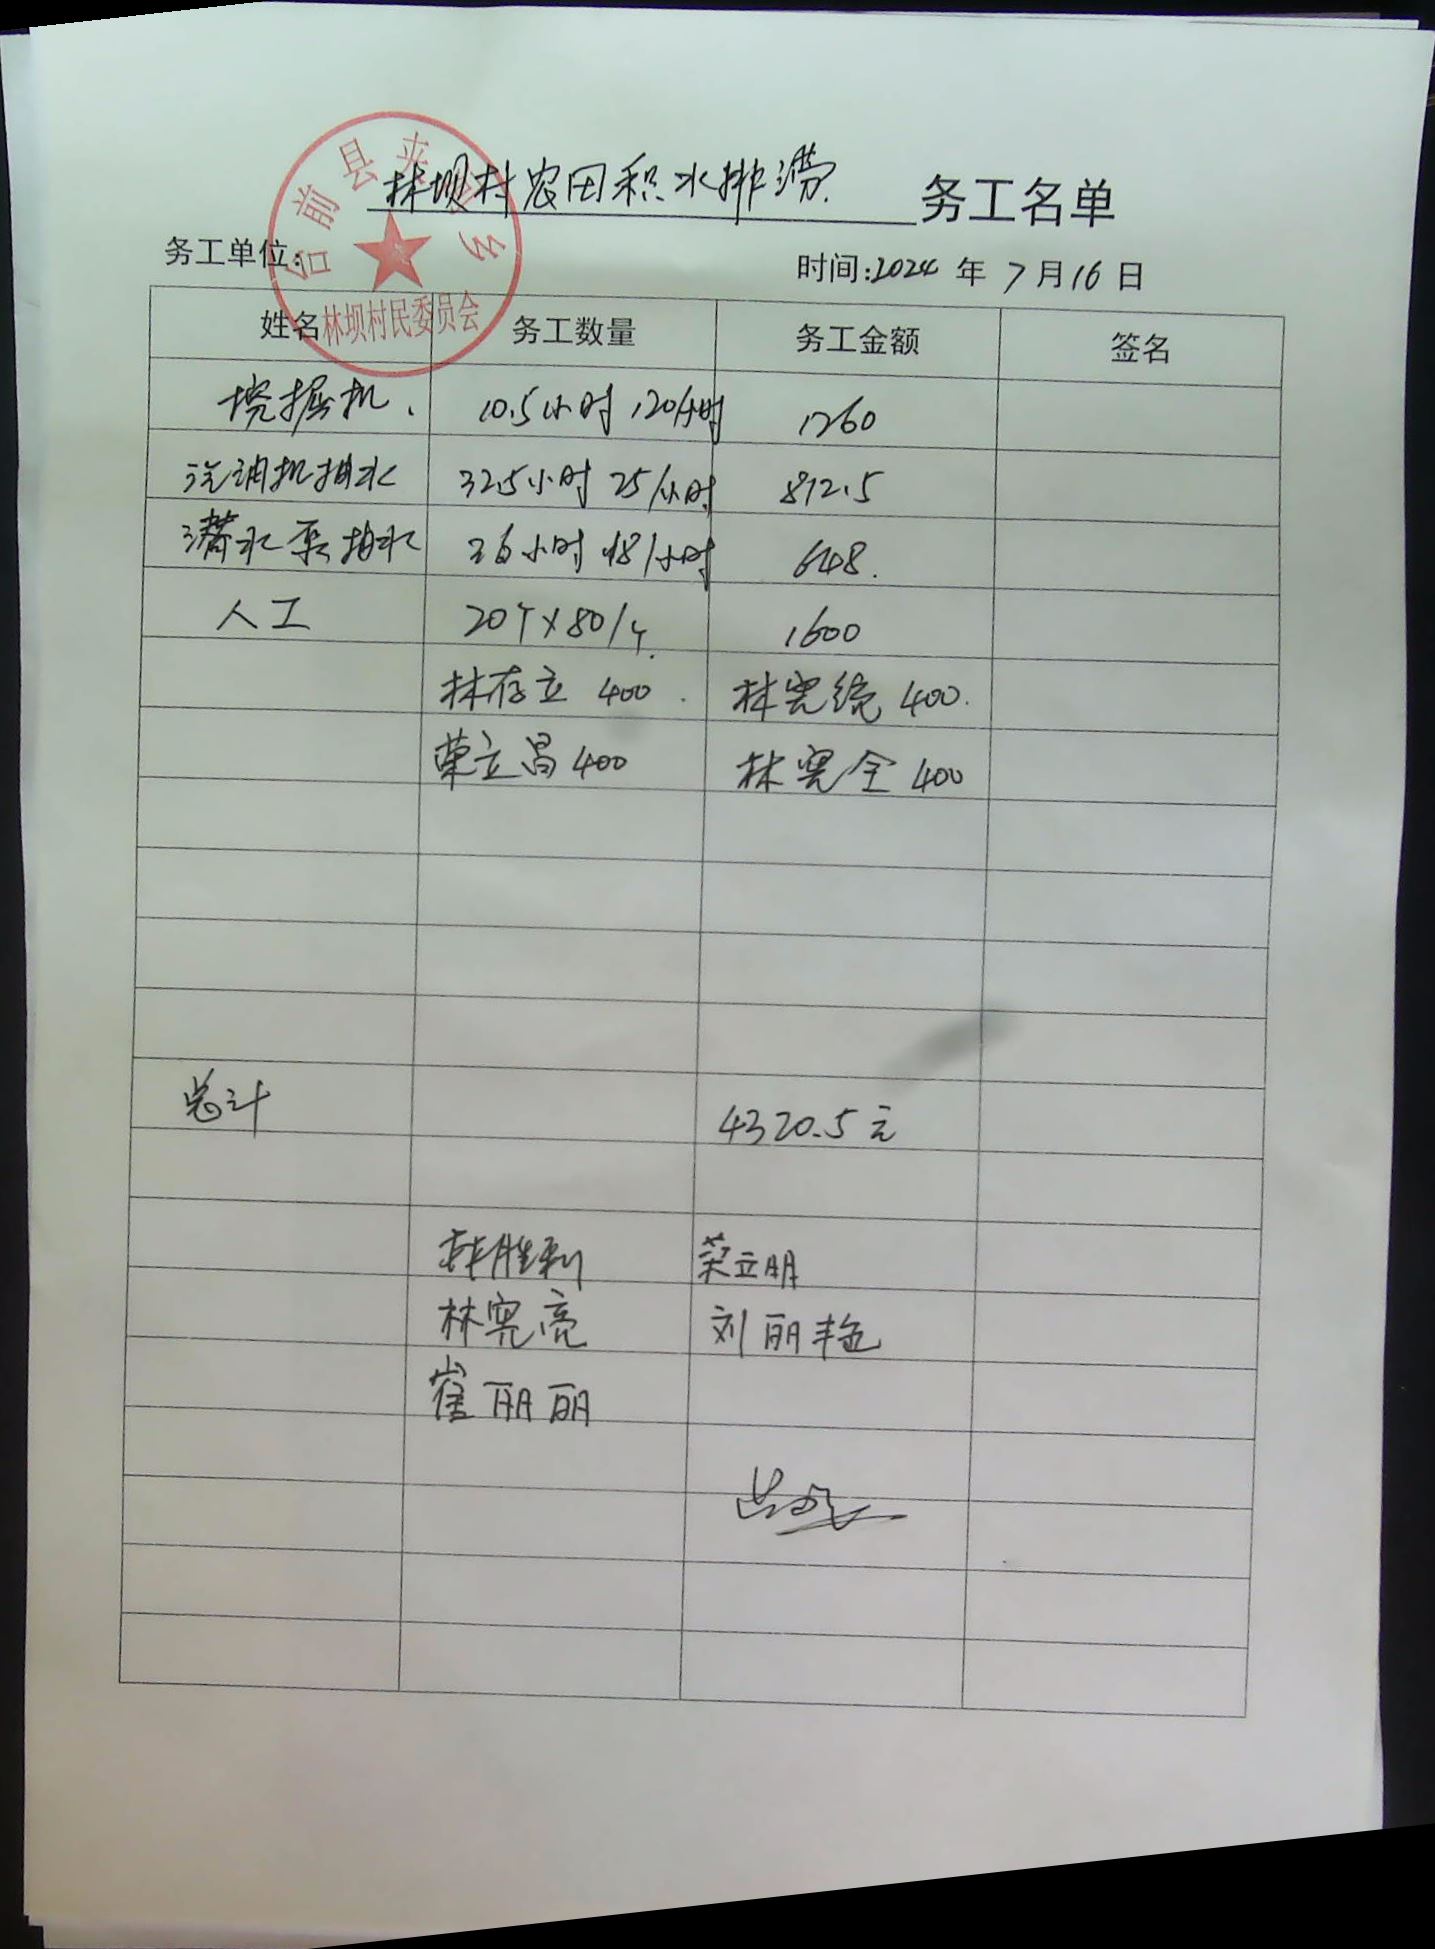 林坝村农田积水排涝 务工名单
务工单位: 时间:2024年7月16日
台前县夹河乡
林坝村民委员会
姓名 务工数量 务工金额 签名
挖掘机 10.5小时 120/小时 1260
汽油机抽水 32.5小时 25/小时 812.5
潜水泵抽水 36小时 18/小时 648.
人工 20个×80/个. 1600
林存立 400. 林宪统 400.
荣立昌 400 林宪全 400
总计 4320.5元
林胜利 荣立明
林宪亮 刘丽艳
崔丽丽